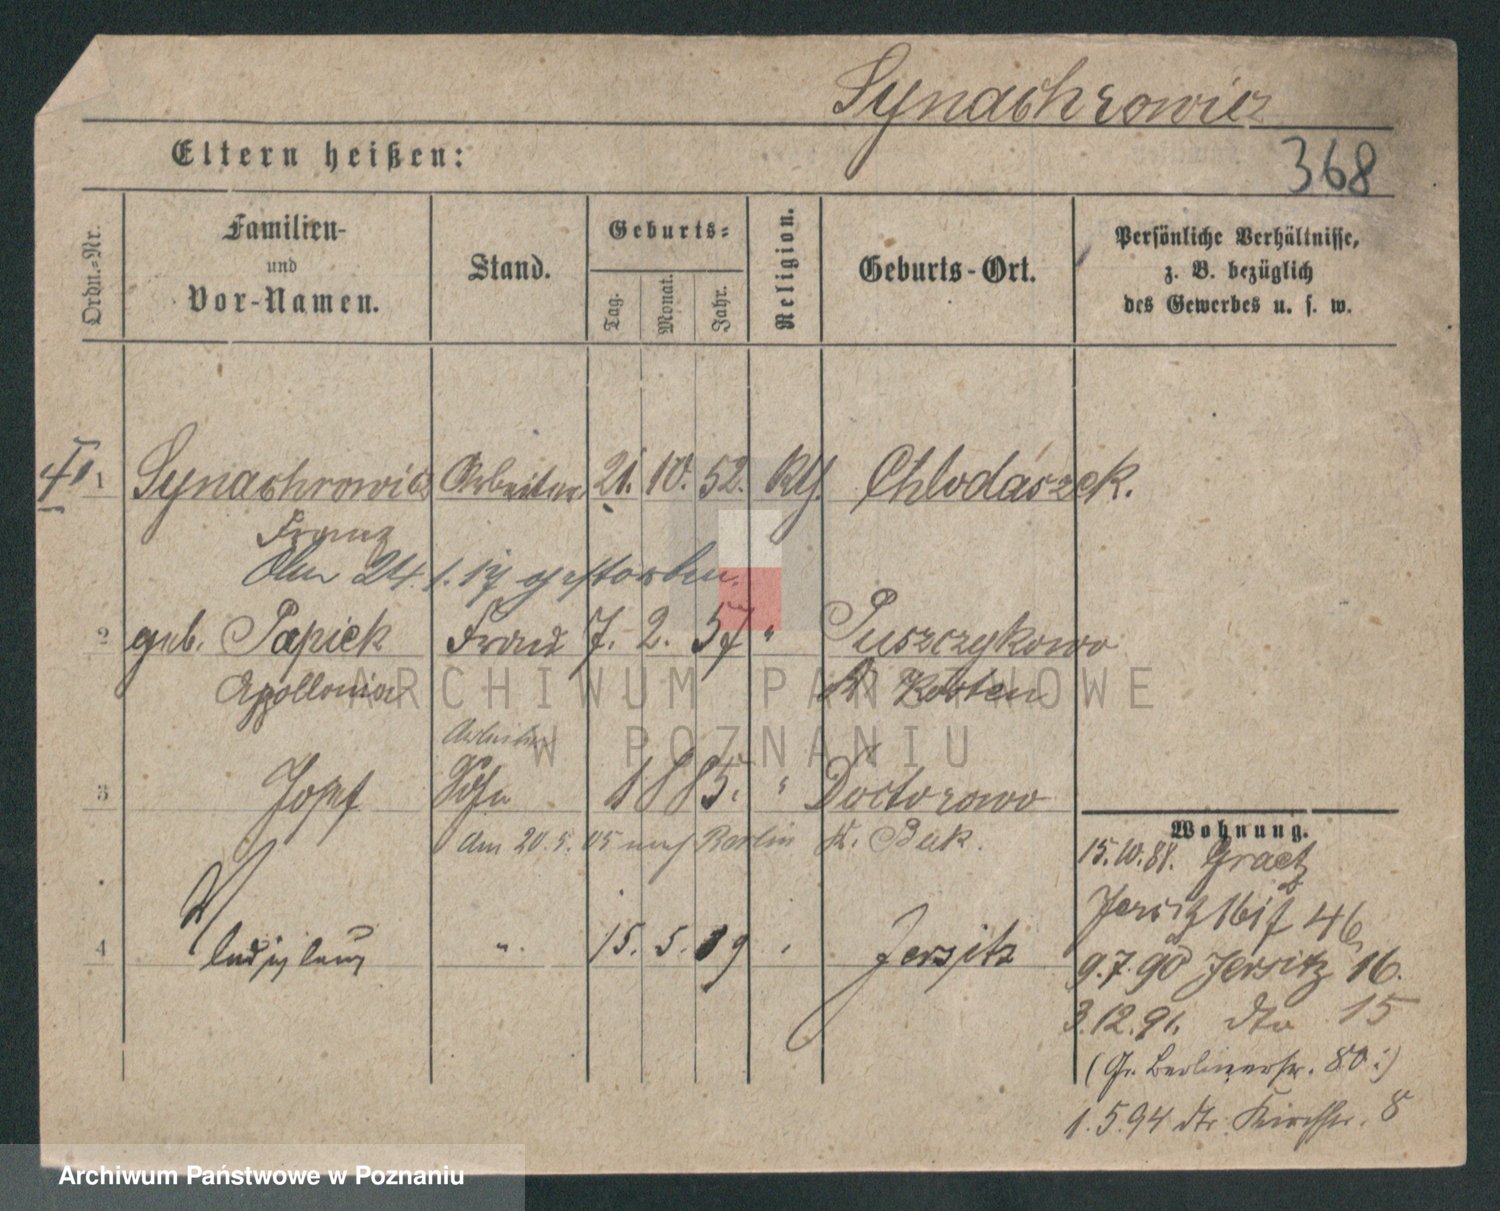 Synachrowicz
Eltern heißen:
368
Ordn.-Nr.
Familien-
und
Vor-Namen.
Stand.
Geburts-
Tag.
Monat.
Jahr.
Religion.
Geburts-Ort.
Persönliche Verhältnisse,
z. B. bezüglich
des Gewerbes u. s. w.
1 Synachrowicz Arbeiter 21. 10. 52. Kth. Chlodaszek.
Franz
Am 24. 1. 17 gestorben.
2 geb. Papiek Frau 7. 2. 57 " Puszczykowo
Apollonia Kr. Kosten
Arbeiter
3 Josef Sohn 1885. " Doctorowo
Am 20. 5. 05 nach Berlin Kr. Buk.
4 ". 15. 5. 89 " Jersitz
Wohnung.
15.10.88. Graetz
Jersitz 46
9.7.90 Jersitz 16.
3.12.91. dto 15
(Gr. Berlinerstr. 80:)
1.5.94 dto Kirchstr. 8
ARCHIWUM PAŃSTWOWE
W POZNANIU
Archiwum Państwowe w Poznaniu